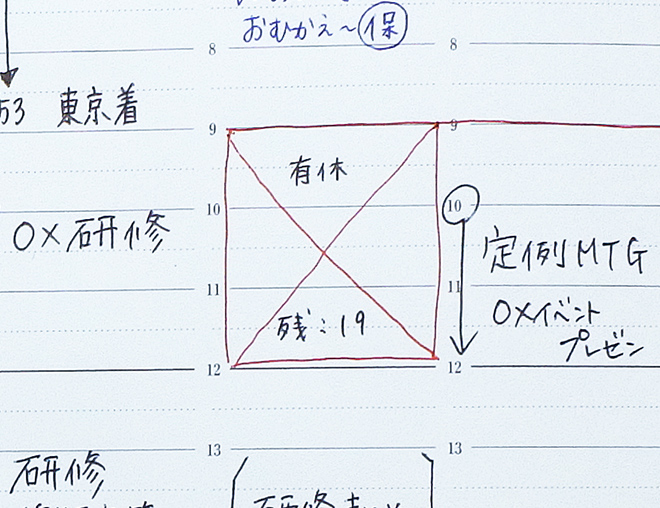 おむかえ〜保
8
8
53 東京着
9
9
有休
10
10
○×研修
定例MTG
11
11
○×イベント
残:19
プレゼン
12
12
13
13
研修
研修